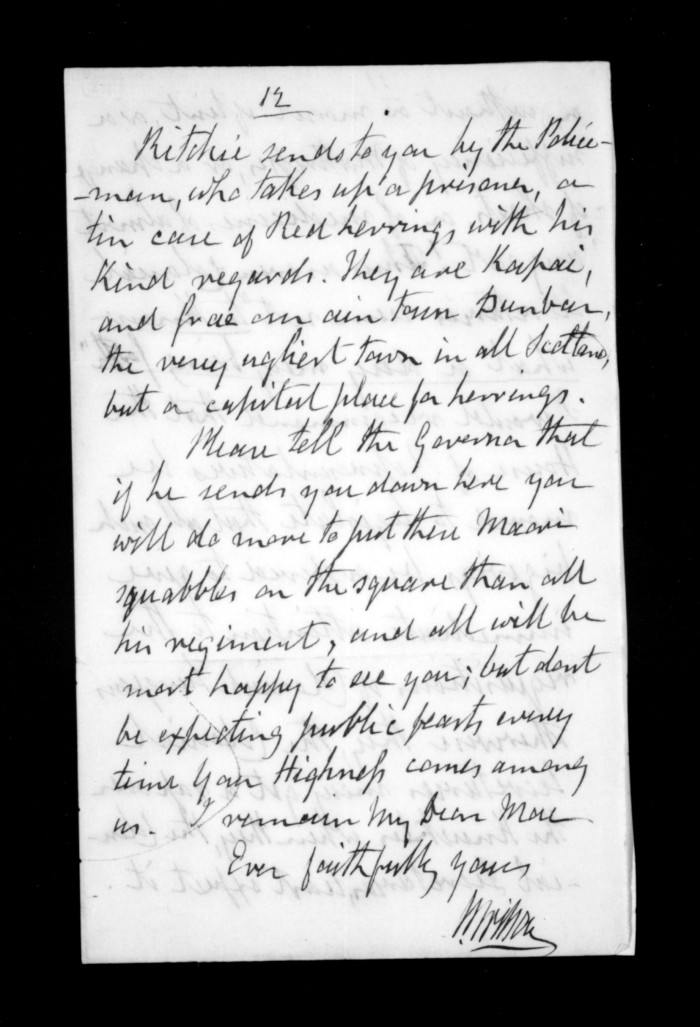 12
Ritchie sends to you by the Police-
-man, who takes up a prisoner, a
tin case of Red herrings with his
Kind regards. They are Kapai,
and frae our ain town Dunbar,
the very ugliest town in all Scotland,
but a capital place for herrings.
Please tell the Governor that
if he sends you down here you
will do more to put these Maori
squabbles on the square than all
his regiment, and all will be
most happy to see you; but dont
be expecting public feasts every
time Your Highness comes among
us. I remain My Dear Mac
Ever faithfully yours